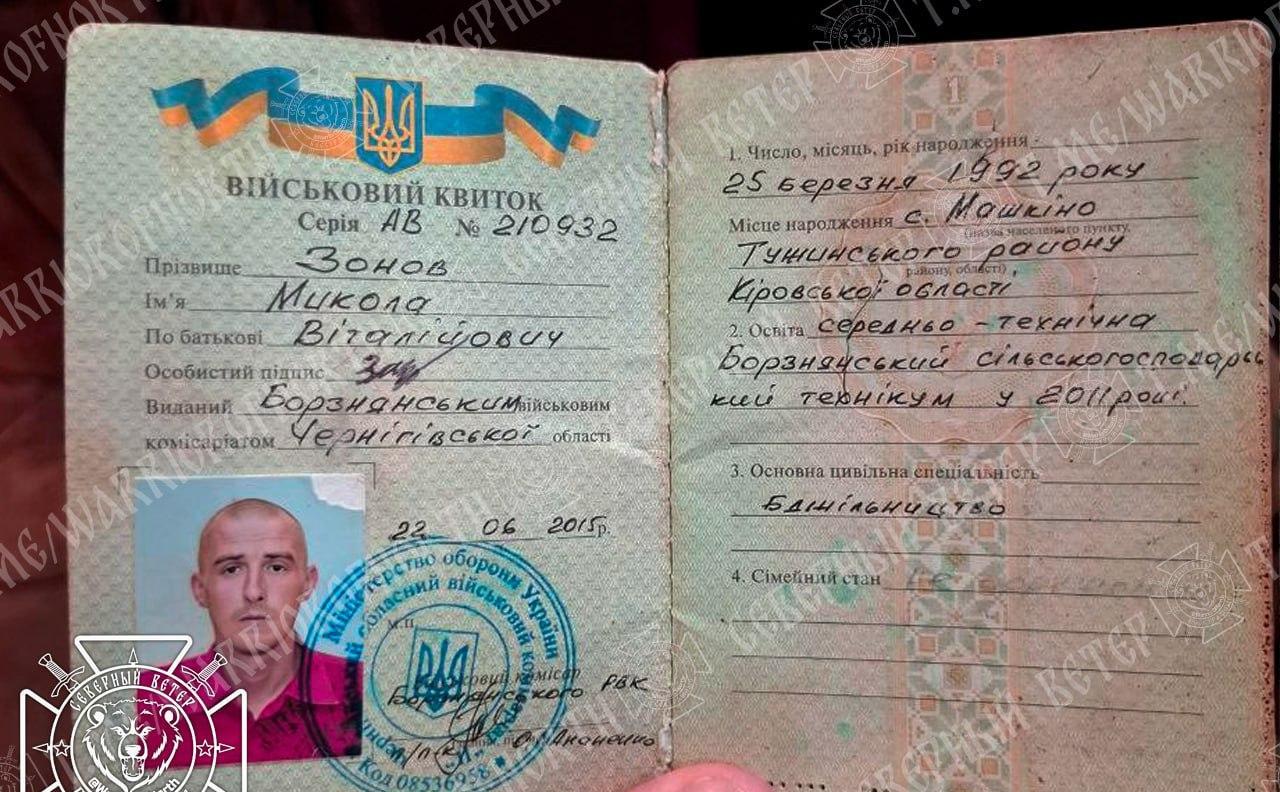 ВІЙСЬКОВИЙ КВИТОК
Серія АВ № 210932
Прізвище Зонов
Ім'я Микола
По батькові Віталійович
Особистий підпис
Виданий Борзнянським військовим
комісаріатом Чернігівської області
22 06 2015р.
Міністерство оборони України
обласний військовий
М.П.
військовий комісар
Борзнянського РВК
п/п-к
Код 08536958
1
1. Число, місяць, рік народження
25 березня 1992 року
Місце народження с. Машкіно
(назва населеного пункту,
Тужинського району
району, області)
Кіровської області
2. Освіта середньо-технічна
Борзнянський сільськогосподарсь
кий технікум у 2011 році.
3. Основна цивільна спеціальність
Бджільництво
4. Сімейний стан
СЕВЕРНЫЙ ВЕТЕР
T.ME/WARRIOROFNORTH